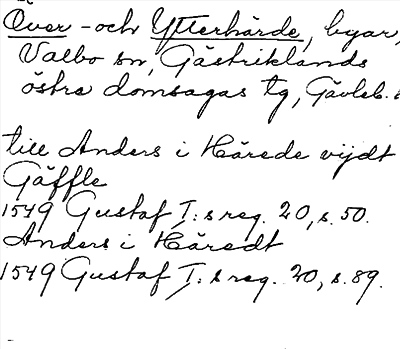 Över - och Ytterhärde, byar,
Valbo sn, Gästriklands
östra domsagas tg, Gävleb. l
till Anders i Härede vijdt
Gäffle
1549 Gustaf I:s reg. 20, s. 50.
Anders i Häredt
1549 Gustaf I:s reg. 20, s. 89.